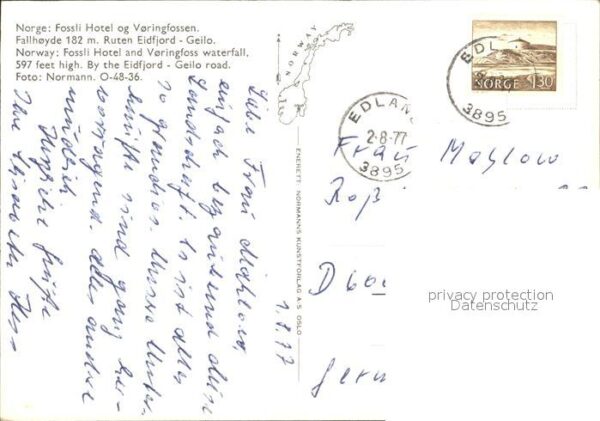 Norge: Fossli Hotel og Vøringfossen.
Fallhøyde 182 m. Ruten Eidfjord - Geilo.
Norway: Fossli Hotel and Vøringfoss waterfall,
597 feet high. By the Eidfjord - Geilo road.
Foto: Normann. O-48-36.
NORWAY
ENERETT: NORMANNS KUNSTFORLAG A.S OSLO
EDLAN
2-8-77
3895
EDLAN
3895
NORGE 130
1.8.77
Liebe Frau Mahlow,
einfach bezaubernd diese
Landschaft. Es ist alles
so grandios. Unsere Unter-
künfte sind ganz her-
vorragend. Alles andere
mündlich
Herzliche Grüße
Ihre Elisabeth
Frau Mahlow
Roß
D 600
Germ
privacy protection
Datenschutz